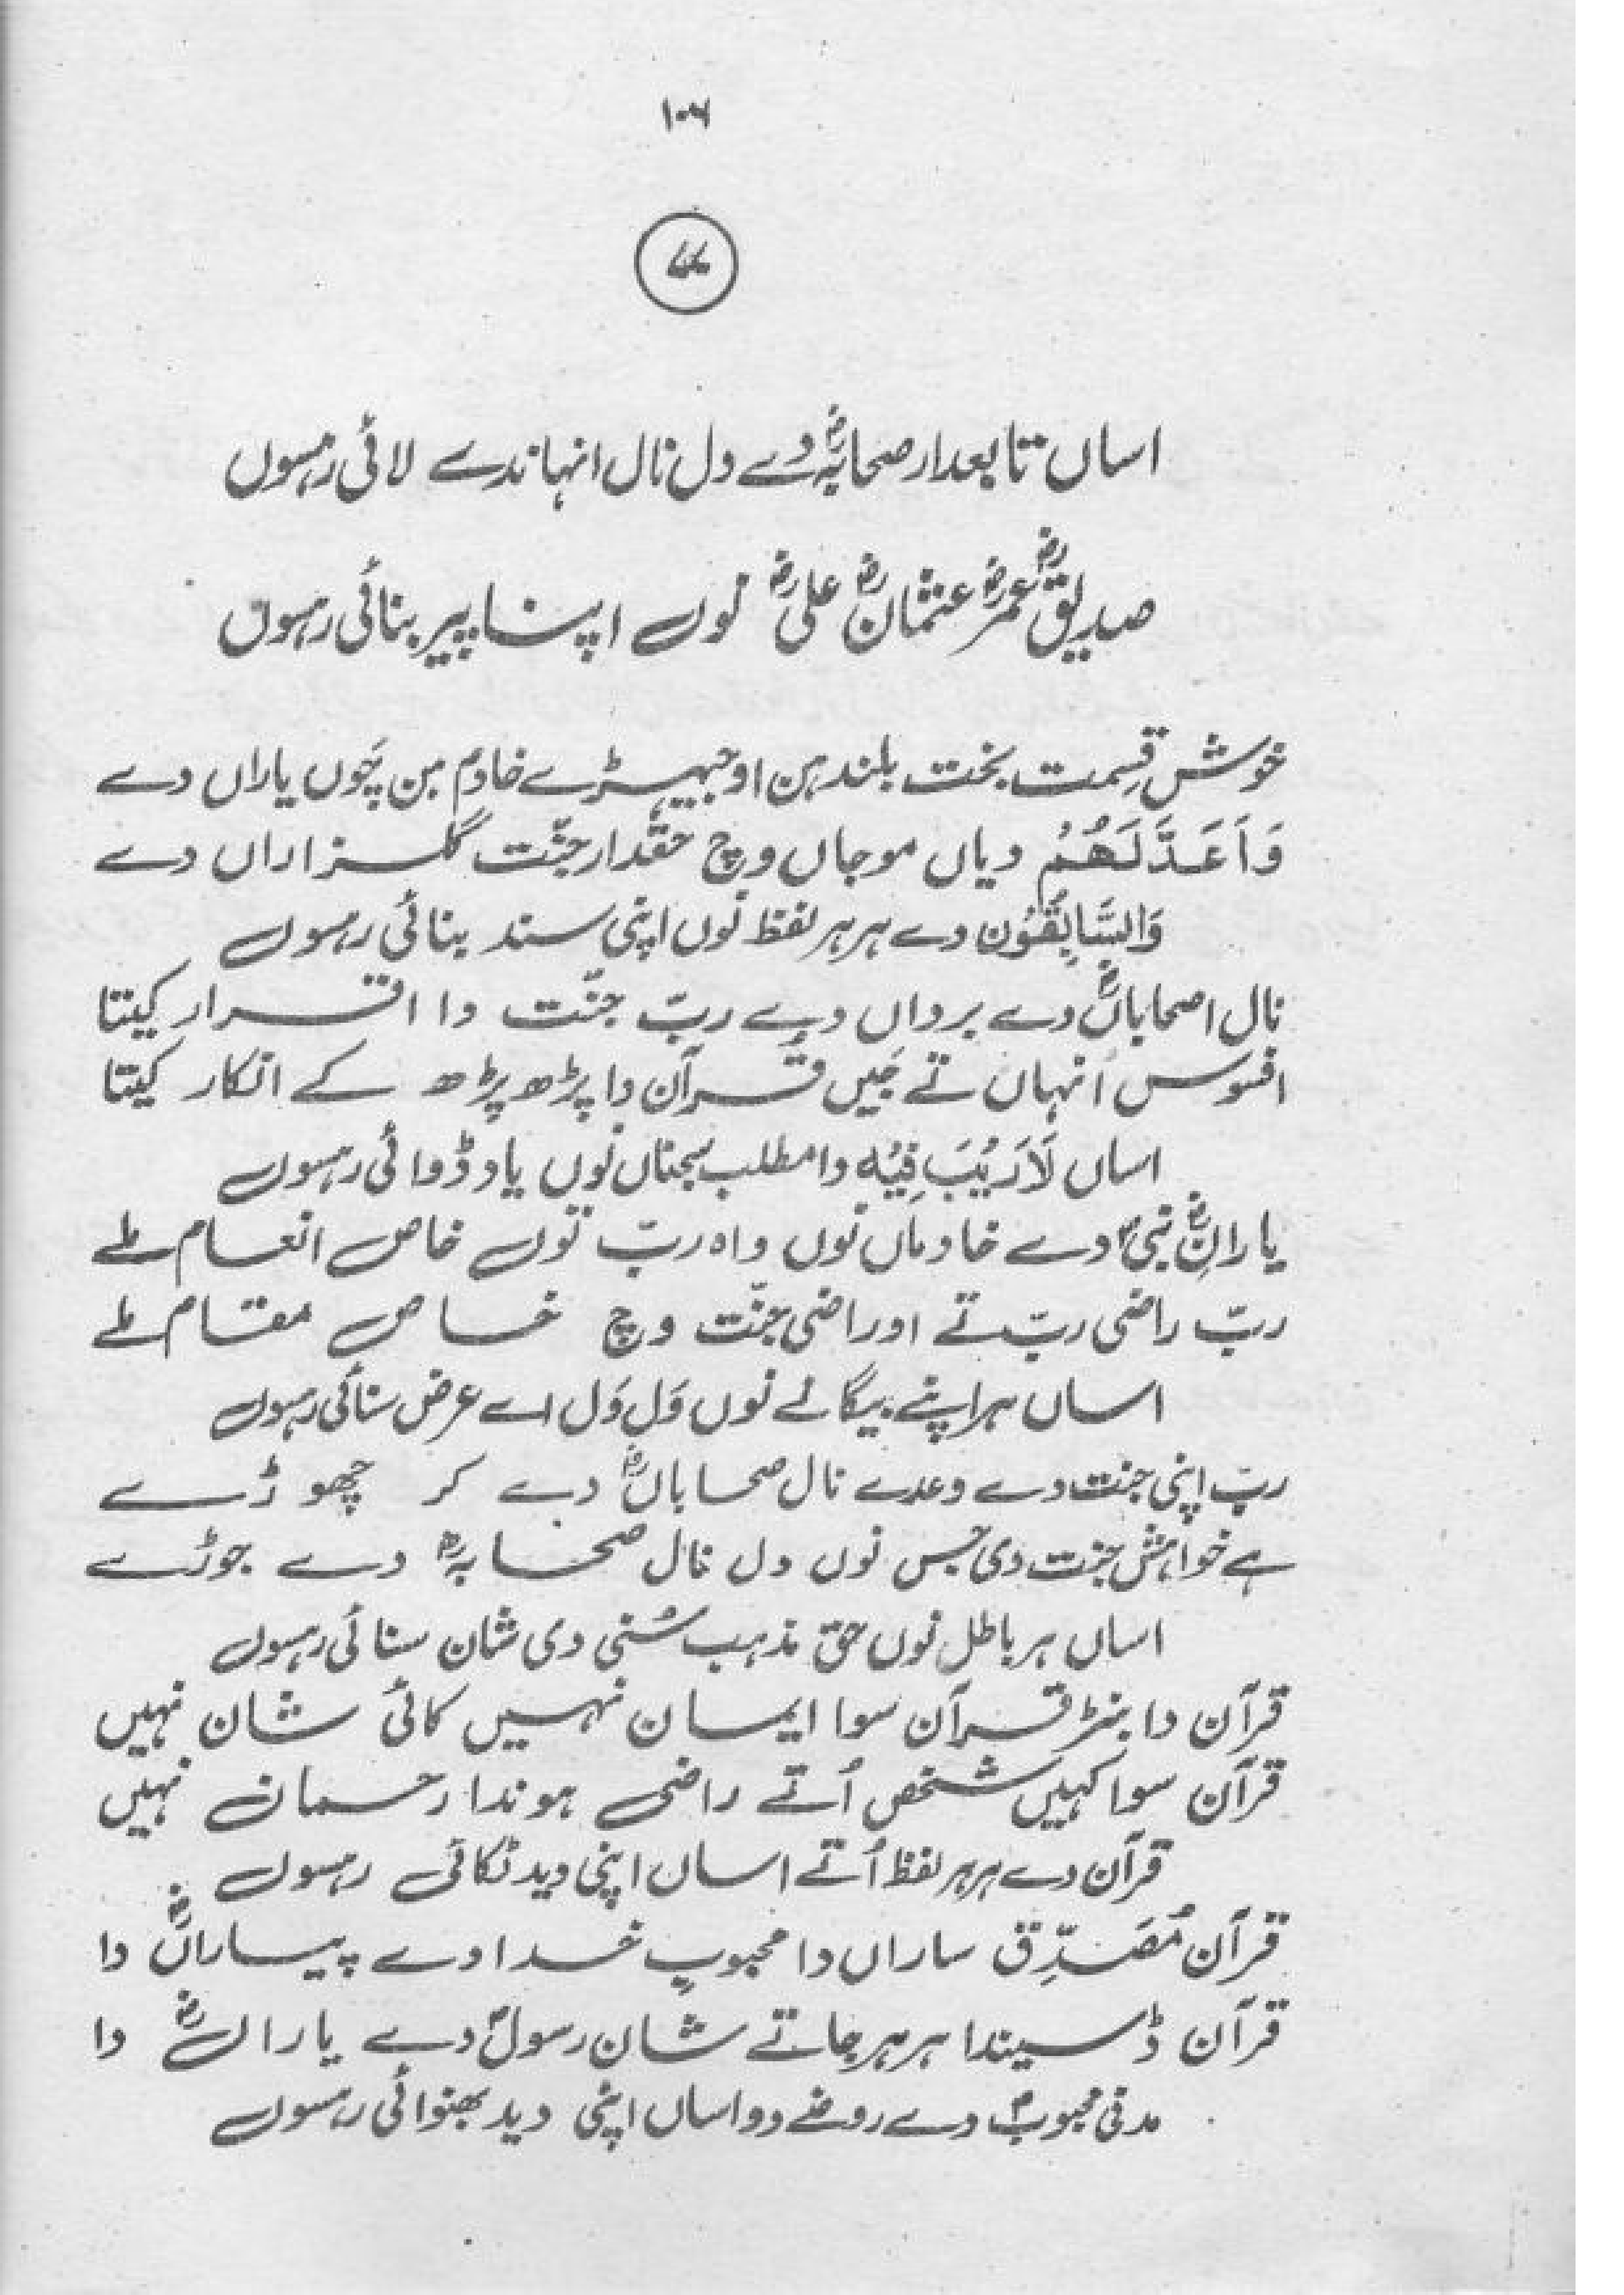 ۱۰۶
۷۷
اساں تابعدار صحابہؓ دے دل نال انہاندے لائی رہسوں
صدیقؓ عمرؓ عثمانؓ علیؓ نوں اپنا پیر بنائی رہسوں
خوش قِسمت بخت بلند ہن او جیہڑے خادِم ہن چَوں یاراں دے
وَاَعَدَّلَہُمْ دیاں موجاں وچ حقّدار جنّت گلزاراں دے
وَالسَّابِقُوْن دے ہر ہر لفظ نوں اپنی سند بنائی رہسوں
نال اصحاباںؓ دے برداں دے ربّ جنّت دا اقرار کیتا
افسوس اُنہاں تے جَیں قرآن دا پڑھ پڑھ کے انکار کیتا
اساں لَارَیْبَ فِیْہ دا مطلب سجناں نوں یاد ڈوائی رہسوں
یارانِؓ نبیؐ دے خادماں نوں واہ ربّ توں خاص انعام ملے
ربّ راضی ربّ تے او راضی جنّت وچ خاص مقام ملے
اساں ہر اپنے بیگانے نوں وَل وَل اے عرض سنائی رہسوں
ربّ اپنی جنت دے وعدے نال صحاباںؓ دے کر چھوڈے
ہے خواہش جنت دی جِس نوں دل نال صحابہؓ دے جوڑے
اساں ہر باطل نوں حق مذہب سُنی دی شان سنائی رہسوں
قرآن دا بنڑ قرآن سوا ایمان نہیں کائی شان نہیں
قرآن سوا کہیں شخص اُتے راضی ہوندا رحمان نہیں
قرآن دے ہر ہر لفظ اُتے اساں اپنی دید ٹکائی رہسوں
قرآن مُصَدِّق ساراں دا محبوبِ خدا دے پیاراںؓ دا
قرآن ڈسیندا ہر ہر جاتے شان رسولؐ دے یاراںؓ دا
مدنی محبوبؐ دے روضے دو اساں اپنی دید بھنوائی رہسوں